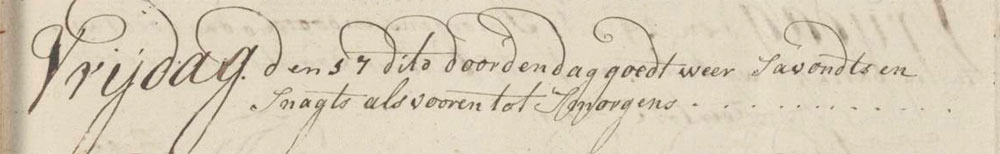 Vrijdag. den 17 dito doordendag goedt weer Savondts en
Snagts als vooren tot Smorgens . . . . . . . . . . . .